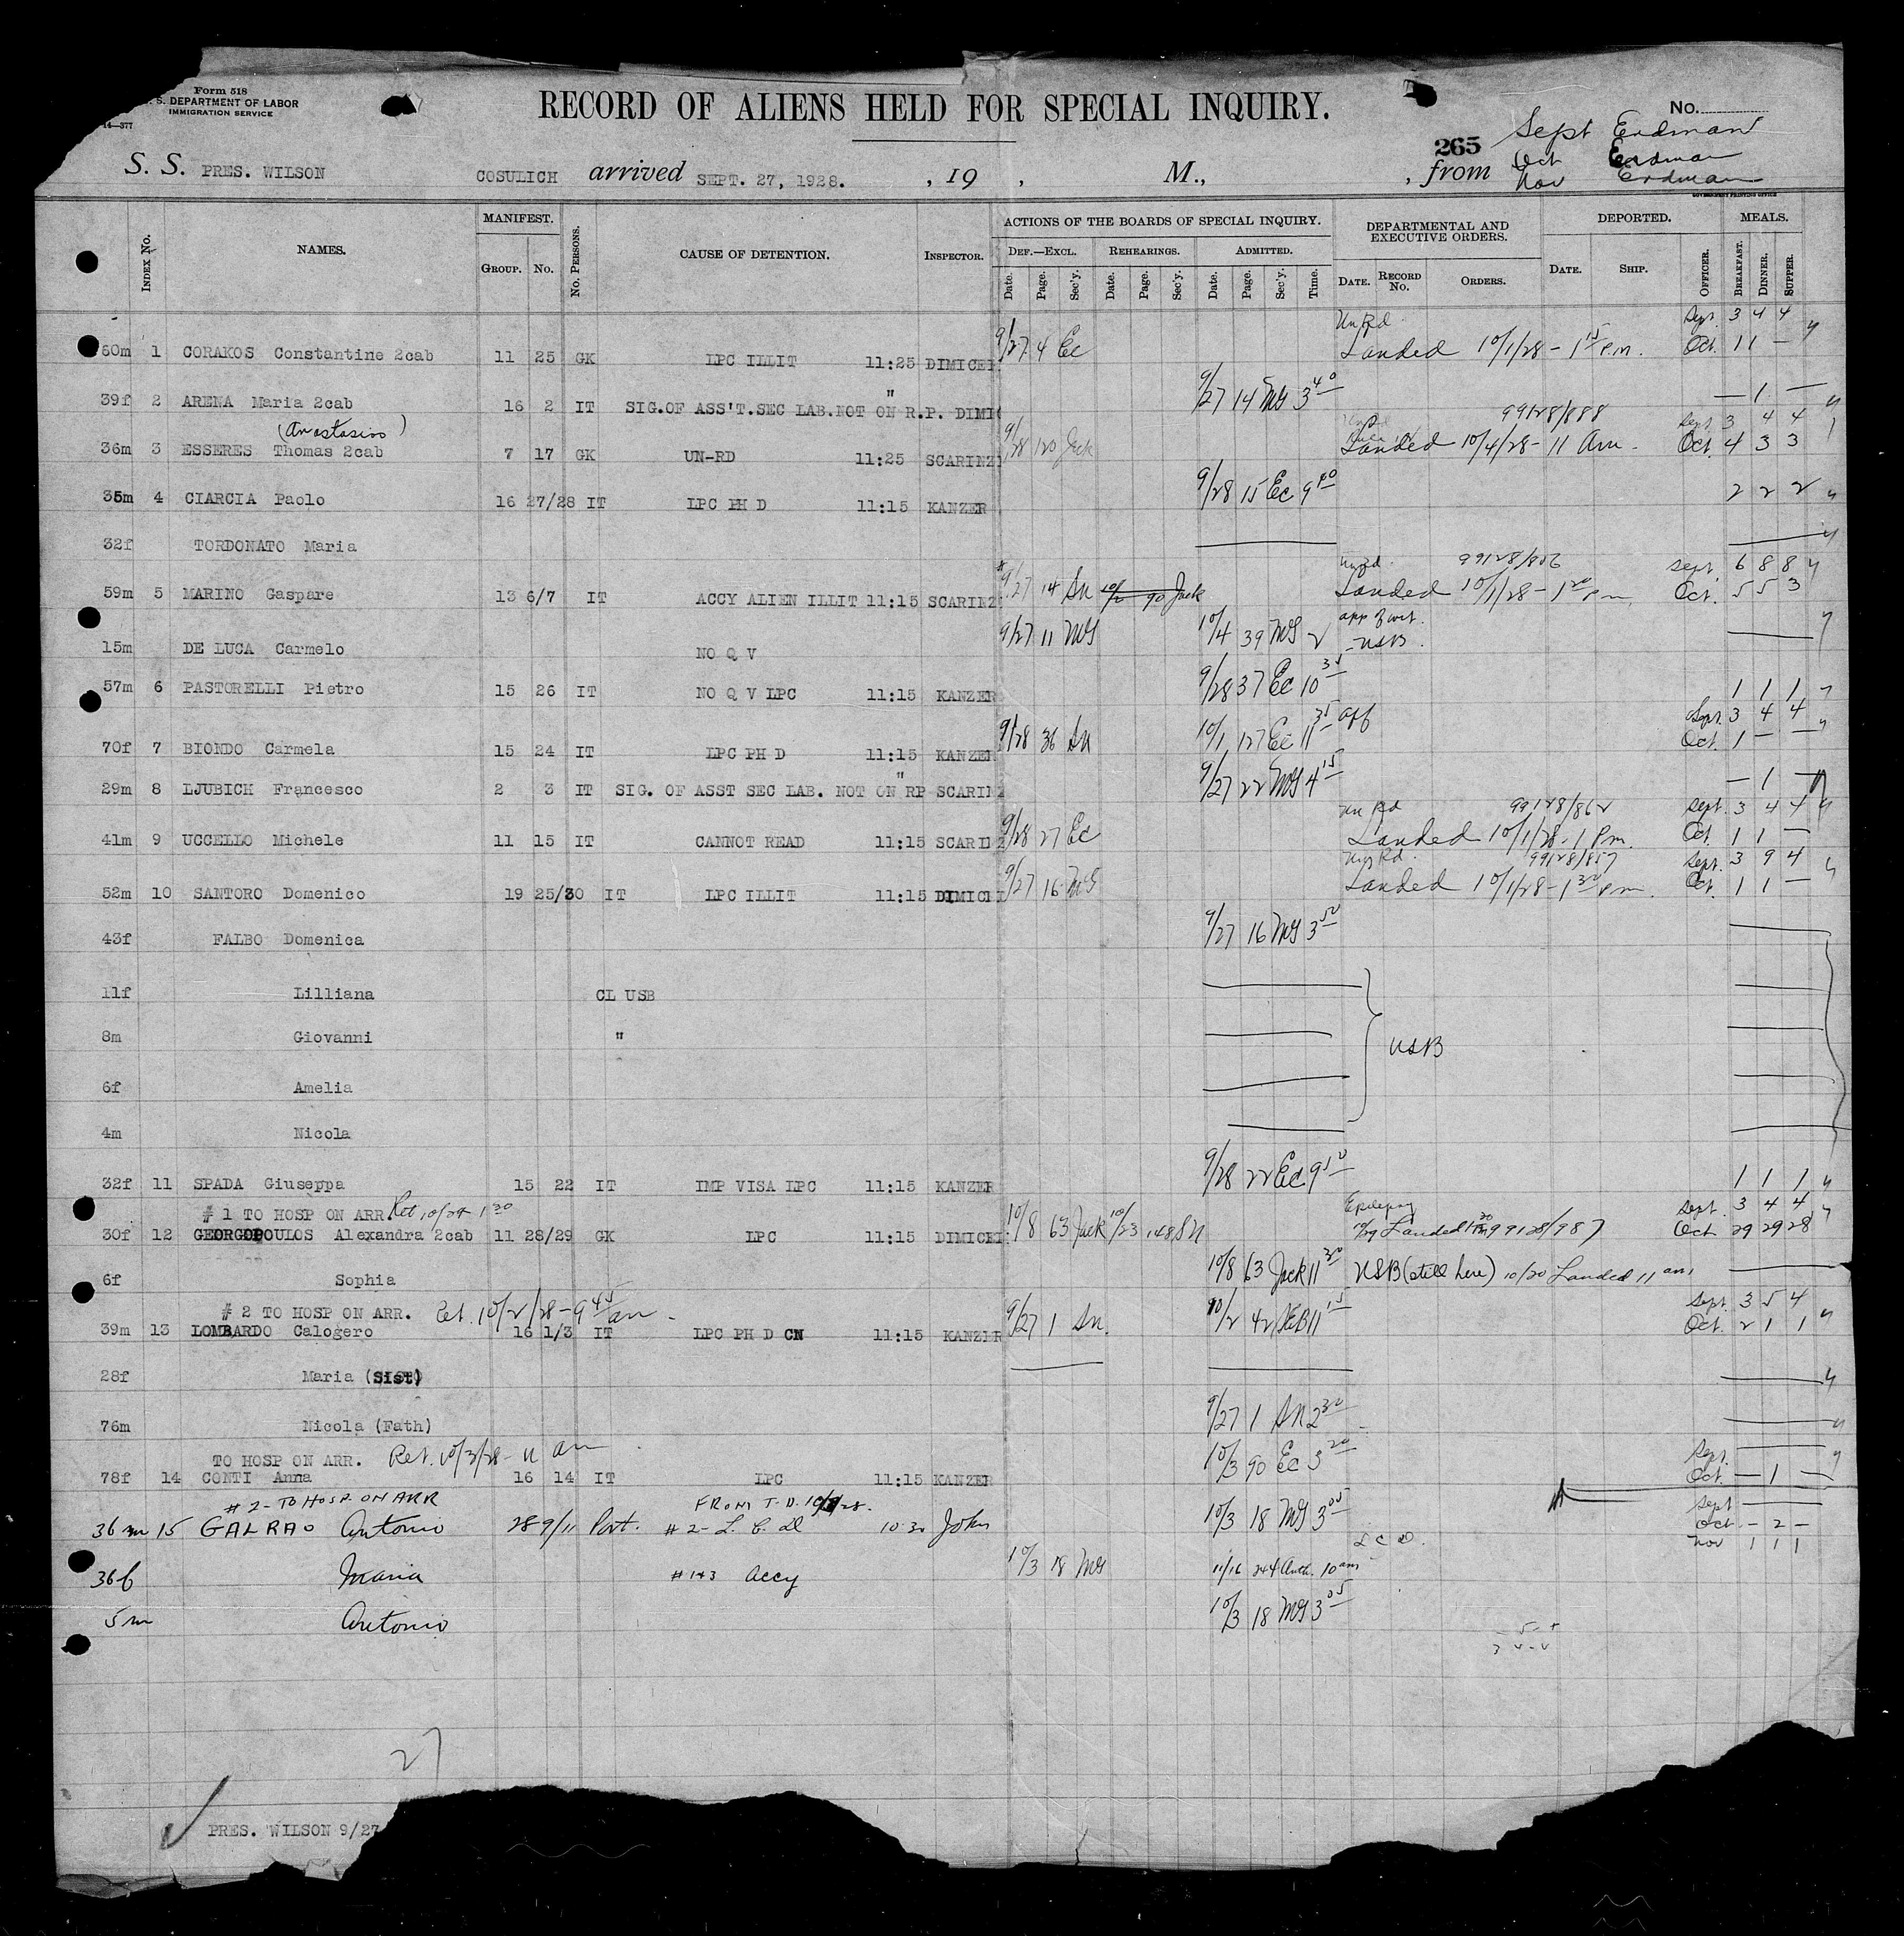 Form 518
S. DEPARTMENT OF LABOR
IMMIGRATION SERVICE
14—377
RECORD OF ALIENS HELD FOR SPECIAL INQUIRY.
No.
265 Sept Erdman
Oct Erdman
Nov Erdman
S. S. PRES. WILSON COSULICH arrived SEPT. 27, 1928. , 19 , M., , from
GOVERNMENT PRINTING OFFICE
INDEX No. NAMES. MANIFEST. GROUP. No. No. PERSONS. CAUSE OF DETENTION. INSPECTOR. ACTIONS OF THE BOARDS OF SPECIAL INQUIRY. DEF.—EXCL. REHEARINGS. ADMITTED. DEPARTMENTAL AND EXECUTIVE ORDERS. DEPORTED. MEALS.
Date. Page. Sec'y. Date. Page. Sec'y. Date. Page. Sec'y. Time. DATE. RECORD No. ORDERS. DATE. SHIP. OFFICER. BREAKFAST. DINNER. SUPPER.
Sept. 3 4 4
60m 1 CORAKOS Constantine 2cab 11 25 GK LPC ILLIT 11:25 DIMICEL 9/27 4 Ec Landed 10/1/28 - 1 15 P.m. Oct. 1 1 —
39f 2 ARENA Maria 2cab 16 2 IT SIG.OF ASS'T.SEC LAB.NOT ON R.P. " DIMI 9/27 14 MG 3 40 — 1 —
(Anastasios) 99128/888 Sept 3 4 4
36m 3 ESSERES Thomas 2cab 7 17 GK UN-RD 11:25 SCARINZ 9/28 120 Jack Landed 10/4/28 - 11 Am. Oct. 4 3 3
35m 4 CIARCIA Paolo 16 27/28 IT LPC PH D 11:15 KANZER 9/28 15 Ec 9 40 2 2 2
32f TORDONATO Maria
99128/856 Sept. 6 8 8
59m 5 MARINO Gaspare 13 6/7 IT ACCY ALIEN ILLIT 11:15 SCARINZ 9/27 14 Sn 10/2 90 Jack Landed 10/1/28 - 1 20 Pm. Oct. 5 5 3
15m DE LUCA Carmelo NO Q V 9/27 11 MG 10/4 39 MG 2 - USB.
57m 6 PASTORELLI Pietro 15 26 IT NO Q V LPC 11:15 KANZER 9/28 37 Ec 10 35 1 1 1
Sept. 3 4 4
70f 7 BIONDO Carmela 15 24 IT LPC PH D 11:15 KANZER 9/28 36 Sn 10/1 127 Ec 11 35 app Oct. 1 — —
29m 8 LJUBICH Francesco 2 3 IT SIG. OF ASST SEC LAB. NOT ON RP " SCARINZ 9/27 22 MG 4 15 — 1 —
Un Rd 99128/862 Sept. 3 4 4
41m 9 UCCELLO Michele 11 15 IT CANNOT READ 11:15 SCARINZ 9/28 27 Ec Landed 10/1/28 - 1 Pm. Oct. 1 1 —
99128/857 Sept. 3 9 4
52m 10 SANTORO Domenico 19 25/30 IT LPC ILLIT 11:15 DIMICEL 9/27 16 MG Landed 10/1/28 - 1 30 Pm. Oct. 1 1 —
43f FALBO Domenica 9/27 16 MG 3 50
11f Lilliana CL USB
8m Giovanni " USB
6f Amelia
4m Nicola
32f 11 SPADA Giuseppa 15 22 IT IMP VISA LPC 11:15 KANZER 9/28 22 Ec 9 50 1 1 1
# 1 TO HOSP ON ARR. Ret 10/24 1 30 Epilepsy Sept. 3 4 4
30f 12 GEORGOPOULOS Alexandra 2cab 11 28/29 GK LPC 11:15 DIMICEL 10/8 63 Jack 10/23 148 Sn Landed 99128/987 Oct 29 29 28
6f Sophia 10/8 63 Jack 11 30 USB (still here) 10/30 Landed 11 am
# 2 TO HOSP ON ARR. Ret. 10/2/28 - 9 45 am. Sept. 3 5 4
39m 13 LOMBARDO Calogero 16 1/3 IT LPC PH D CN 11:15 KANZER 9/27 1 Sn. 10/2 42 11 15 Oct. 2 1 1
28f Maria (Sist)
76m Nicola (Fath) 9/27 1 Sn 2 30
TO HOSP ON ARR. Ret. 10/3/28 - 11 am Sept.
78f 14 CONTI Anna 16 14 IT LPC 11:15 KANZER 10/3 90 Ec 3 20 Oct. — 1 —
# 2 - TO HOSP ON ARR FROM T.D. Sept
36m 15 GALRAO Antonio 28 9/11 Port. # 2 - 10:30 John 10/3 18 MG 3 05 Oct — 2 —
Nov 1 1 1
36f Maria # 1+3 Accy 10/3 18 MG 11/16 244 Auth. 10 am
5m Antonio 10/3 18 MG 3 05
27
PRES. WILSON 9/27